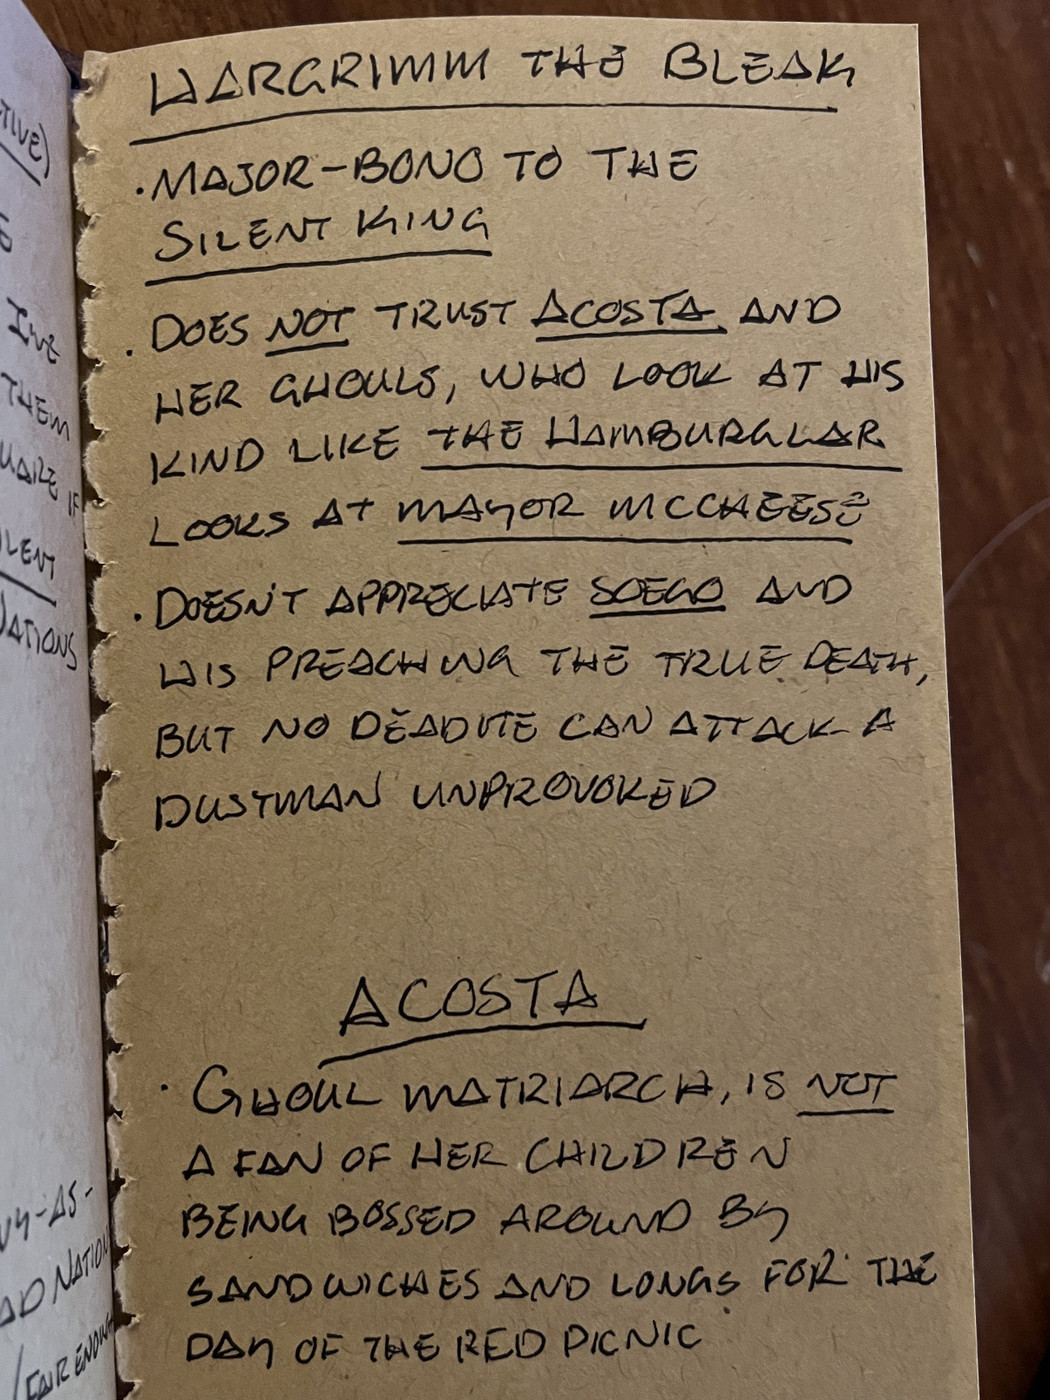 HARGRIMM THE BLEAK
·MAJOR-BONO TO THE
SILENT KING
·DOES NOT TRUST ACOSTA AND
HER GHOULS, WHO LOOK AT HIS
KIND LIKE THE HAMBURGLAR
LOOKS AT MAYOR MCCHEESE
·DOESN'T APPRECIATE SOEGO AND
HIS PREACHING THE TRUE DEATH,
BUT NO DEADITE CAN ATTACK A
DUSTMAN UNPROVOKED
ACOSTA
·GHOUL MATRIARCH, IS NOT
A FAN OF HER CHILDREN
BEING BOSSED AROUND BY
SANDWICHES AND LONGS FOR THE
DAY OF THE RED PICNIC
TIVE)
THEM
IF
LENT
NATIONS
-AS-
NATION
/FAIR ENOUGH